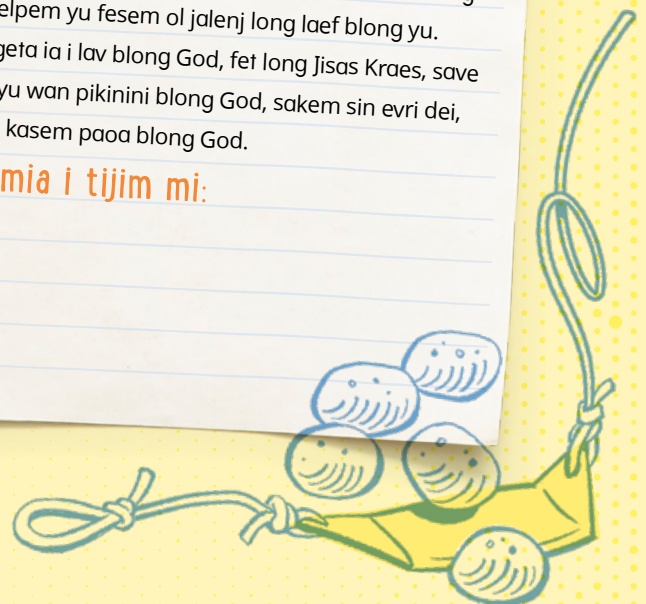 elpem yu fesem ol jalenj long laef blong yu.
geta ia i lav blong God, fet long Jisas Kraes, save
yu wan pikinini blong God, sakem sin evri dei,
kasem paoa blong God.
mia i tijim mi: